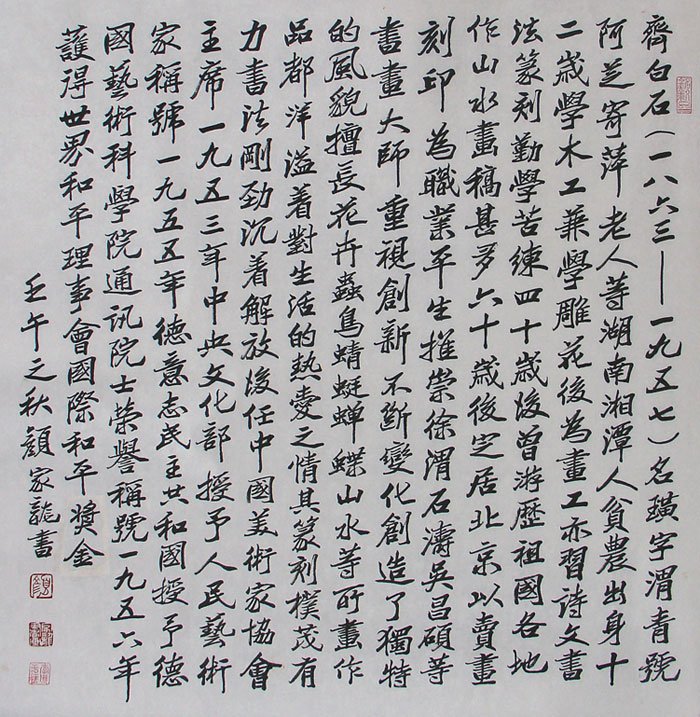 齊白石(一八六三—一九五七)名璜字渭青號
阿芝寄萍老人等湖南湘潭人貧農出身十
二歲學木工兼學雕花後為畫工亦習詩文書
法篆刻勤學苦練四十歲後曾游歷祖國各地
作山水畫稿甚多六十歲後定居北京以賣畫
刻印為職業平生推崇徐渭石濤吳昌碩等
書畫大師重視創新不斷變化創造了獨特
的風貌擅長花卉蟲鳥蜻蜓蟬蝶山水等所畫作
品都洋溢着對生活的熱愛之情其篆刻樸茂有
力書法剛勁沉着解放後任中國美術家協會
主席一九五三年中央文化部授予人民藝術
家稱號一九五五年德意志民主共和國授予德
國藝術科學院通訊院士榮譽稱號一九五六年
護得世界和平理事會國際和平奬金
壬午之秋顏家龍書